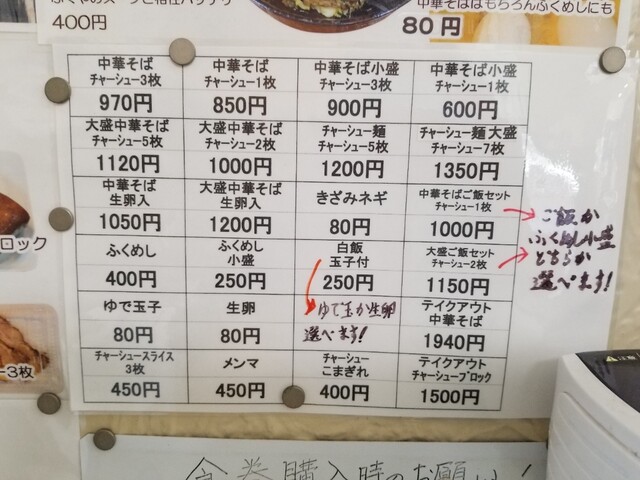 400円
中華そばはもちろんふくめしにも
80円
中華そば
チャーシュー3枚
970円
中華そば
チャーシュー1枚
850円
中華そば小盛
チャーシュー3枚
900円
中華そば小盛
チャーシュー1枚
600円
大盛中華そば
チャーシュー5枚
1120円
大盛中華そば
チャーシュー2枚
1000円
チャーシュー麺
チャーシュー5枚
1200円
チャーシュー麺 大盛
チャーシュー7枚
1350円
中華そば
生卵入
1050円
大盛中華そば
生卵入
1200円
きざみネギ
80円
中華そばご飯セット
チャーシュー1枚
1000円
ふくめし
400円
ふくめし
小盛
250円
白飯
玉子付
250円
大盛ご飯セット
チャーシュー2枚
1150円
ゆで玉子
80円
生卵
80円
ゆで玉か生卵
選べます!
テイクアウト
中華そば
1940円
チャーシュースライス
3枚
450円
メンマ
450円
チャーシュー
こまぎれ
400円
テイクアウト
チャーシューブロック
1500円
ご飯か
ふくめし小盛
どちらか
選べます!
ロック
ー3枚
食券購入時のお願い!